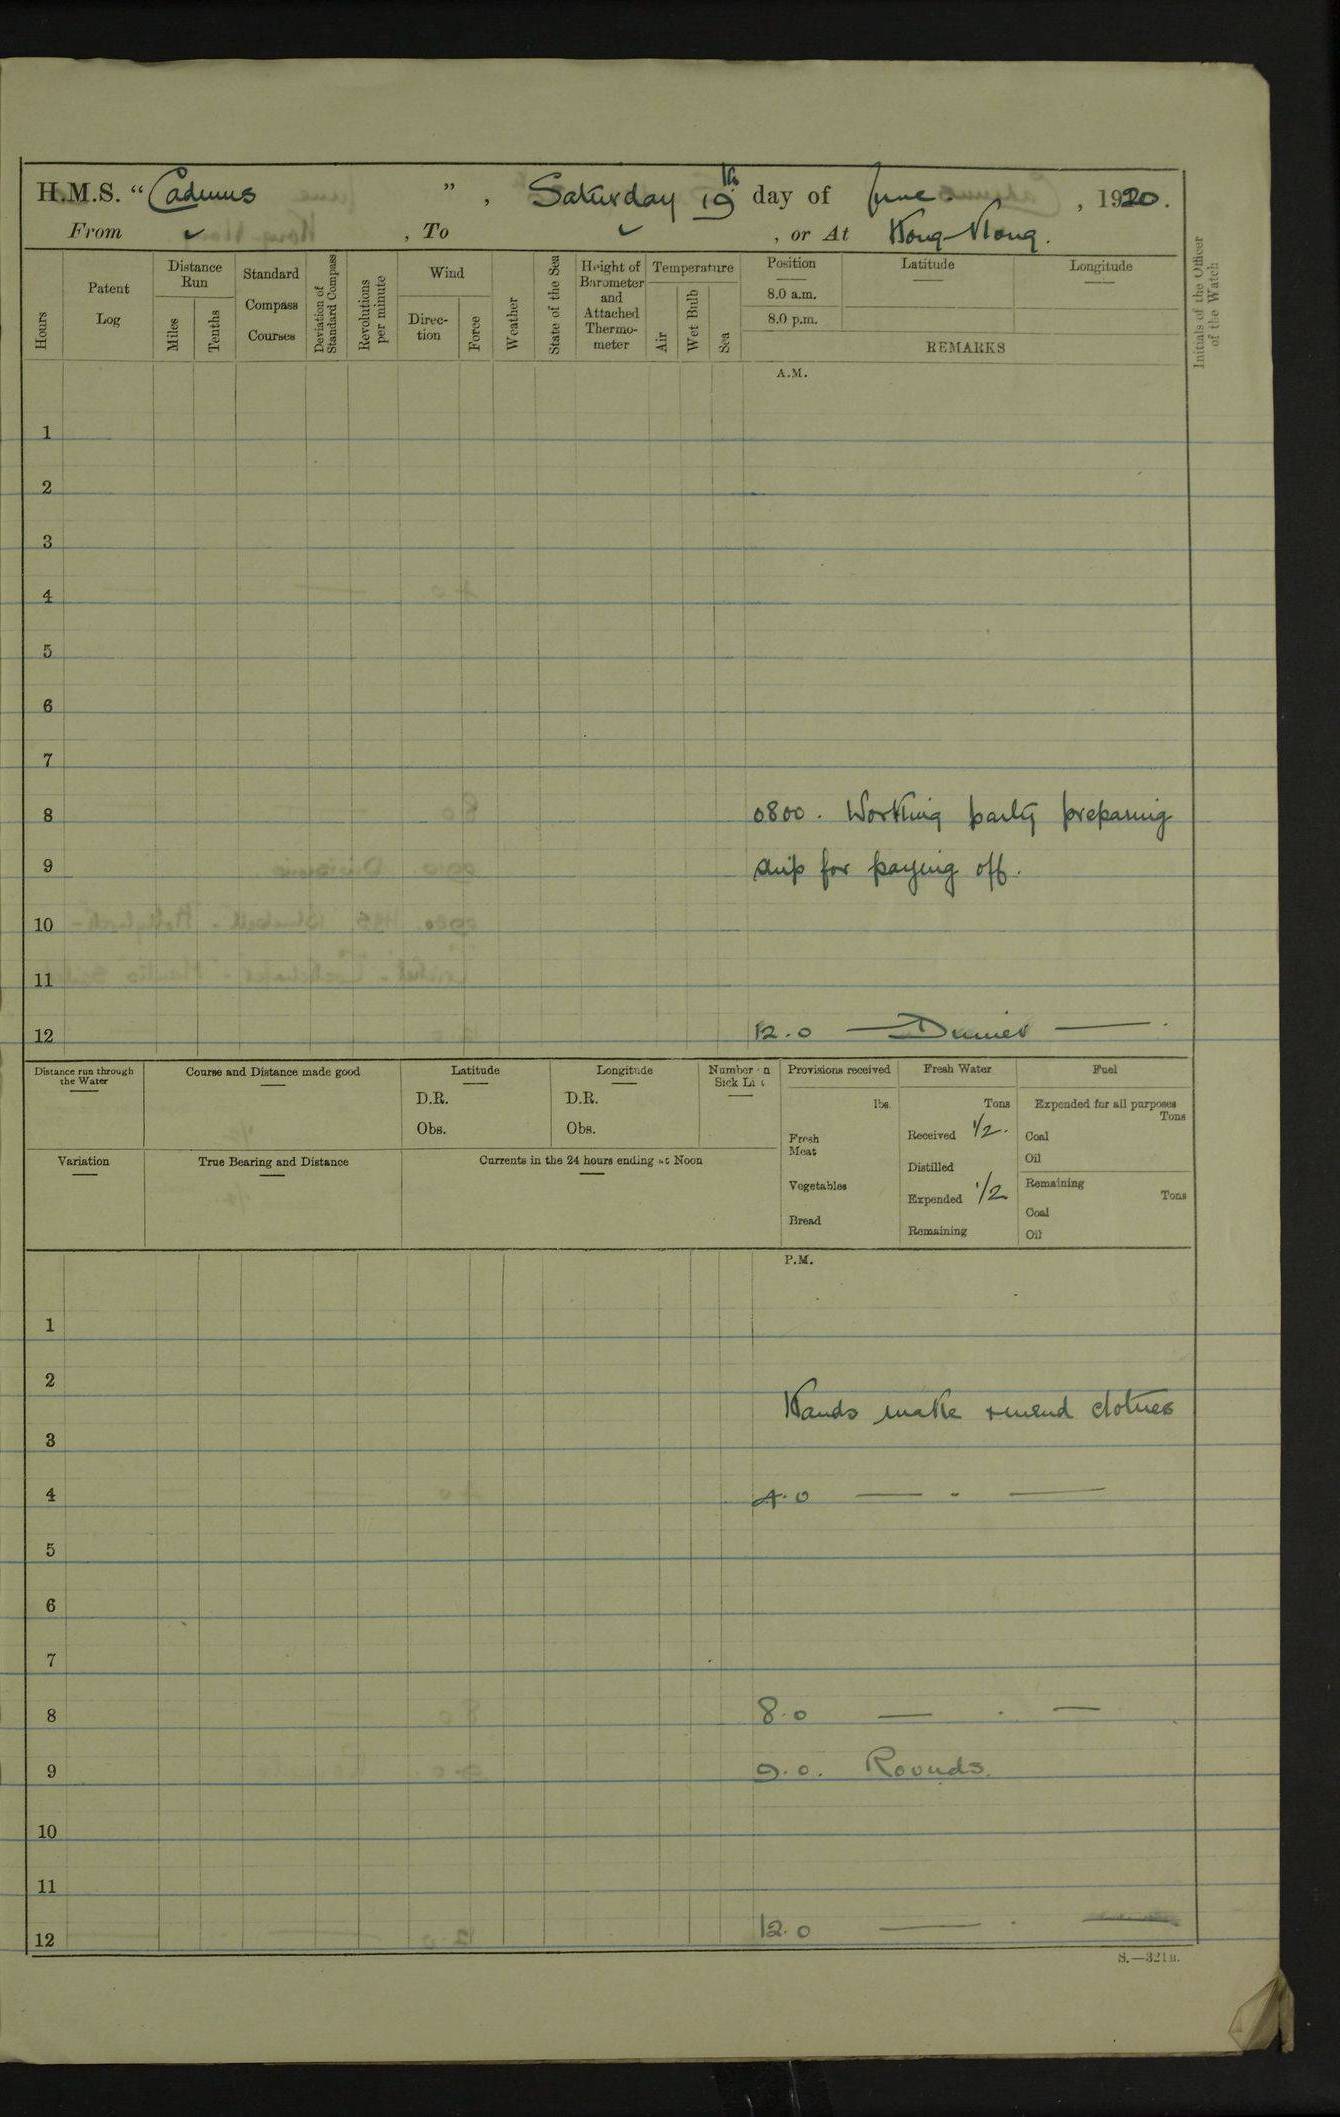 H.M.S. “ Cadmus ” , Saturday 19th day of June. , 1920.
From ✓ , To ✓ , or At Hong-Kong.
Hours
Patent Log
Distance Run
Miles
Tenths
Standard Compass Courses
Deviation of Standard Compass
Revolutions per minute
Wind
Direc-tion
Force
Weather
State of the Sea
Height of Barometer and Attached Thermo-meter
Temperature
Air
Wet Bulb
Sea
Position
8.0 a.m.
8.0 p.m.
Latitude
Longitude
REMARKS
Initials of the Officer of the Watch
A.M.
1
2
3
4
5
6
7
8 0800. Working party preparing
9 ship for paying off.
10
11
12 12.0 — Dinner —
Distance run through the Water
Course and Distance made good
Latitude
D.R.
Obs.
Longitude
D.R.
Obs.
Number on Sick List
Provisions received
lbs.
Fresh Meat
Vegetables
Bread
Fresh Water
Tons
Received 1/2.
Distilled
Expended 1/2
Remaining
Fuel
Expended for all purposes
Tons
Coal
Oil
Remaining
Tons
Coal
Oil
Variation
True Bearing and Distance
Currents in the 24 hours ending at Noon
P.M.
1
2
Hands make & mend clothes
3
4 4.0 — . —
5
6
7
8 8.0 — . —
9 9.0. Rounds.
10
11
12 12.0 — . —
S.—321B.